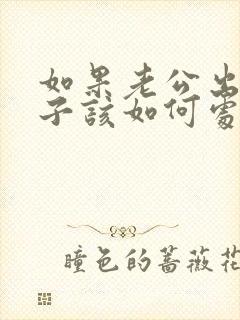 如果老公出
子该如何处
瞳色的蔷薇花